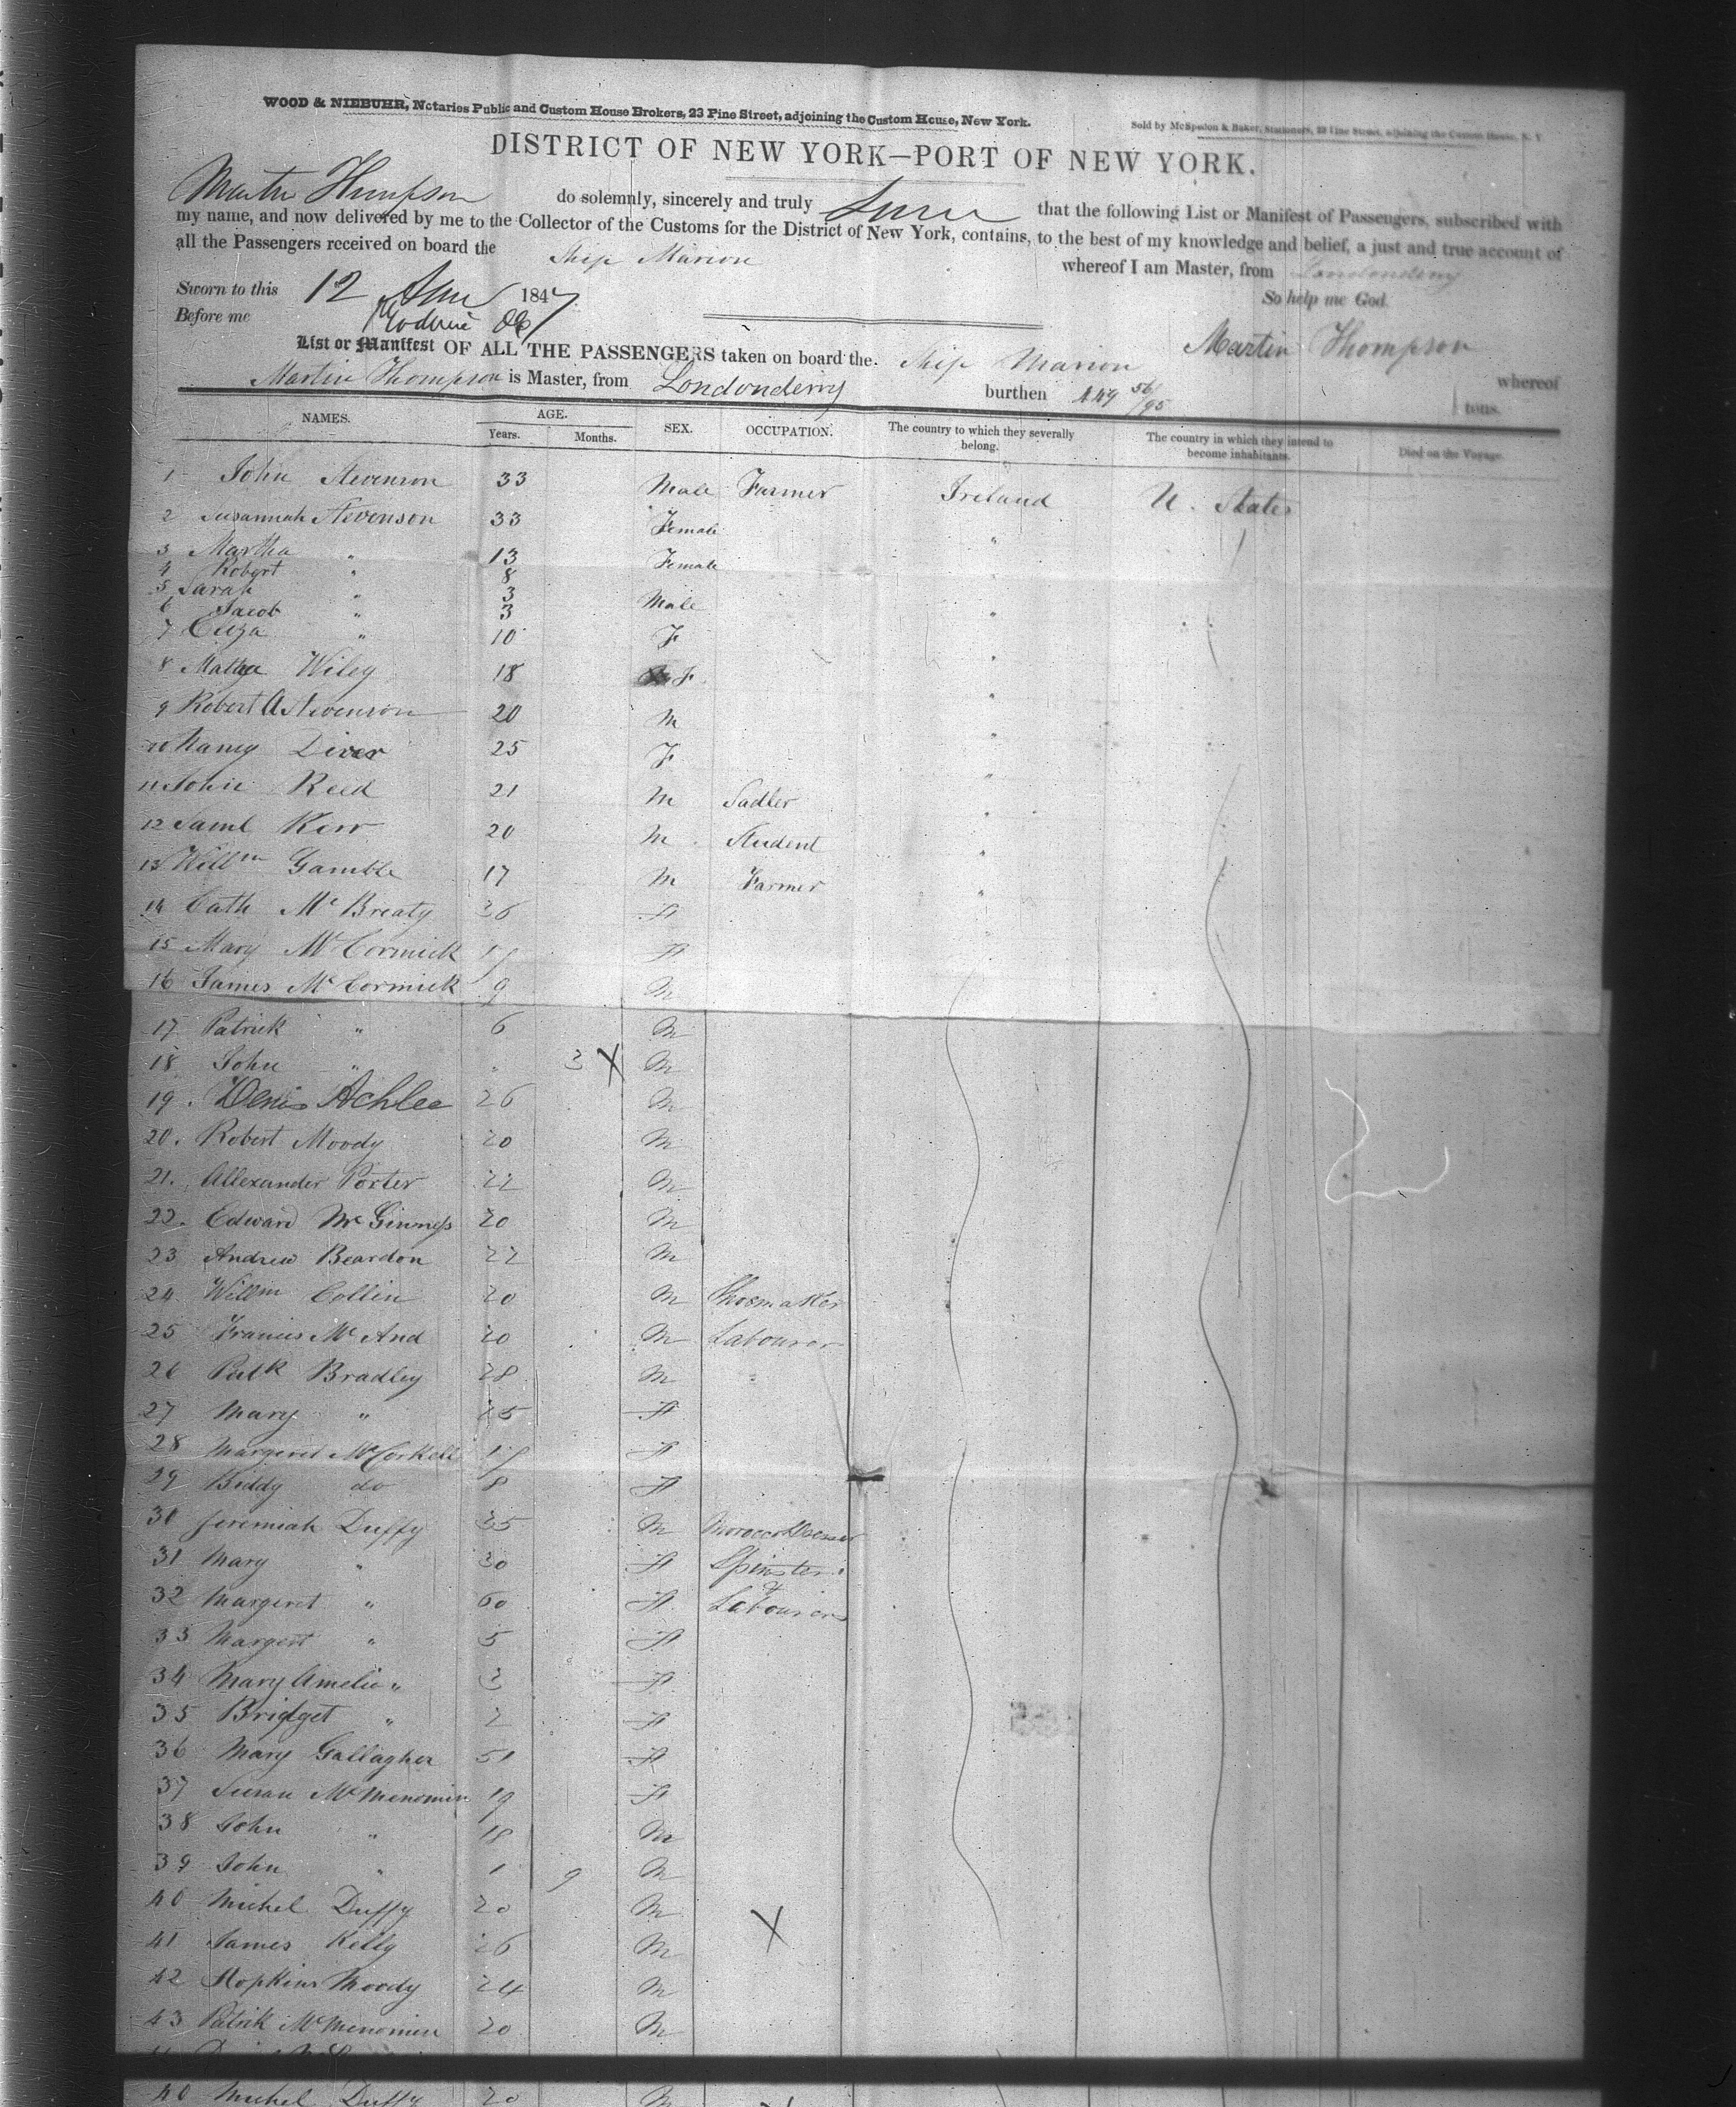 WOOD & NIEBUHR, Notaries Public and Custom House Brokers, 23 Pine Street, adjoining the Custom House, New York.
Sold by McSpedon & Baker, Stationers, 29 Pine Street, adjoining the Custom House, N. Y.
DISTRICT OF NEW YORK—PORT OF NEW YORK.
Martin Thompson do solemnly, sincerely and truly that the following List or Manifest of Passengers, subscribed with
my name, and now delivered by me to the Collector of the Customs for the District of New York, contains, to the best of my knowledge and belief, a just and true account of
all the Passengers received on board the Ship Marion whereof I am Master, from Londonderry
Sworn to this 12 1847 So help me God.
Before me
Martin Thompson
List or Manifest OF ALL THE PASSENGERS taken on board the Ship Marion whereof
Martin Thompson is Master, from Londonderry burthen 449 56/95 tons.
NAMES. AGE. SEX. OCCUPATION. The country to which they severally belong. The country in which they intend to become inhabitants. Died on the Voyage.
Years. Months.
1 John Stevenson 33 Male Farmer Ireland U. States
2 Susannah Stevenson 33 Female "
3 Martha " 13 Female
4 Robert " 8
5 Sarah " 3 Male
6 Jacob " 3 "
7 Eliza " 10 F
8 Wiley 18 F "
9 Robert A Stevenson 20 M "
10 Nancy Diver 25 F "
11 John Reed 21 M Sadler "
12 Saml Kerr 20 M Student "
13 Willm Gamble 17 M Farmer "
14 Cath McBreaty 36 F
15 Mary McCormick F
16 James McCormick 9 M
17 Patrick " 6 M
18 John " " 3 X M
19. Denis Achlee 26 M
20. Robert Moody 20 M
21. Allexander Porter 22 M
22. Edward McGinness 20 M
23 Andrew Beardon 22 M
24 Willm Collin 20 M Shoemaker
25 Francis McAnd 20 M Labourer
26 Patk Bradley 28 M "
27 Mary " 25 F
28 Margeret McCorkell 17 F
29 Biddy do 8 F
30 Jeremiah Duffy 35 M Morocco Dresser
31 Mary " 30 F Spinster
32 Margeret " 60 F Labourers
33 Margert " 5 F
34 Mary Amelia " 3 F
35 Bridget " 2 F
36 Mary Gallagher 51 F
37 Susan McMenomin 19 F
38 John " 18 M
39 John " 1 9 M
40 Michel Duffy 20 M X
41 James Kelly 26 M
42 Hopkins Moody 24 M
43 Patrik McMenomin 20 M
40 Michel Duffy 20 M